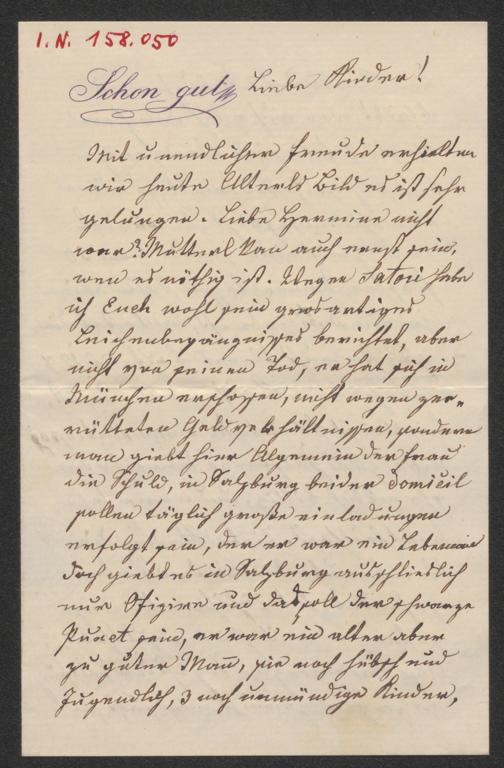 I.N. 158.050
Schon gut Liebe Kinder!
Mit unendlicher Freude erhielten
wir heute Alterls Bild es ist sehr
gelungen. Liebe Hermine nicht
war? Mutterl kan auch ernst sein,
wen es nöthig ist. Wegen Satori habe
ich Euch wohl sein grosartiges
Leichenbegängnisses berichtet, aber
nicht von seinen Tod, er hat sich in
München erschossen, nicht wegen zer=
rütteten Geldverhältnissen, sondern
man giebt hier Algemein der Frau
die Schuld, in Salzburg beider Domicil
sollen täglich große einladungen
erfolgt sein, der er war ein Lebeman
doch giebt es in Salzburg ausschlieslich
nur Ofizire und das soll der schwarze
Punct sein, er war ein alter aber
zu guter Mann, sie noch hübsch und
Jugendlich, 3 noch unmündige Kinder,